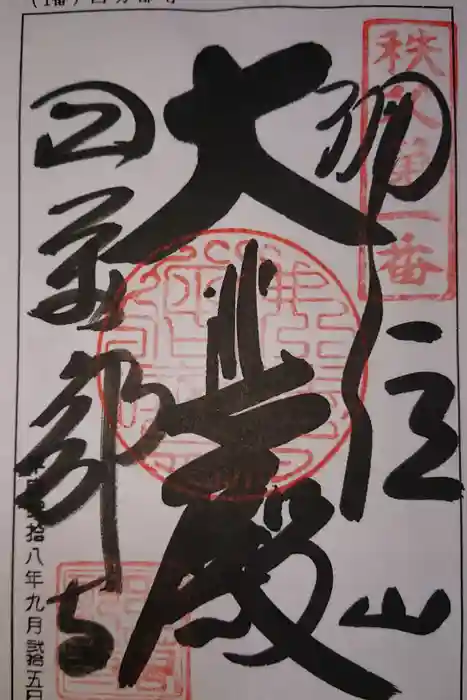 (1番)四万部寺
秩父第一番
誦経山
大悲殿
四萬部寺
拾八年九月弐拾五日